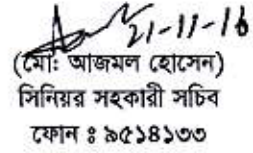 21-11-16
(মো: আজমল হোসেন)
সিনিয়র সহকারী সচিব
ফোন ঃ ৯৫১৪১৩৩